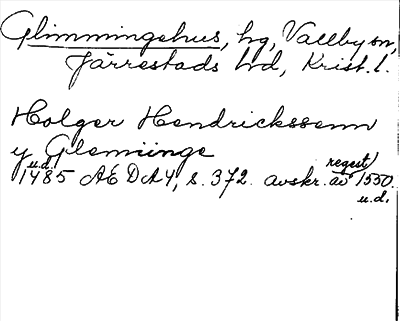 Glimmingehus, hg, Vallby sn,
Järrestads hd, Krist. l.
Holger Hendrickssenn
y Glemiinge
u.d.
1485 AE DA4, s. 372. avskr. av regest/ 1550.
u.d.